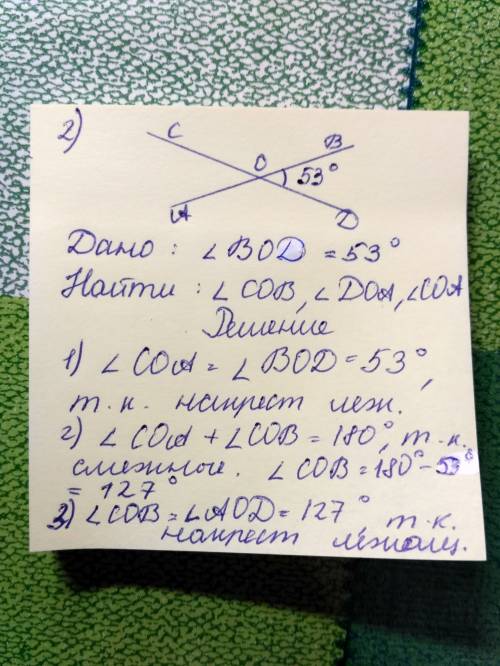 2)
C
O
B
53°
A
D
Дано : ∠BOD = 53°
Найти : ∠COB, ∠DOA, ∠COA
Решение
1) ∠COA = ∠BOD = 53°,
т.к. накрест леж.
2) ∠COA + ∠COB = 180°, т.к.
смежные. ∠COB = 180° - 53°
= 127°
3) ∠COB = ∠AOD = 127°, т.к.
накрест лежащ.